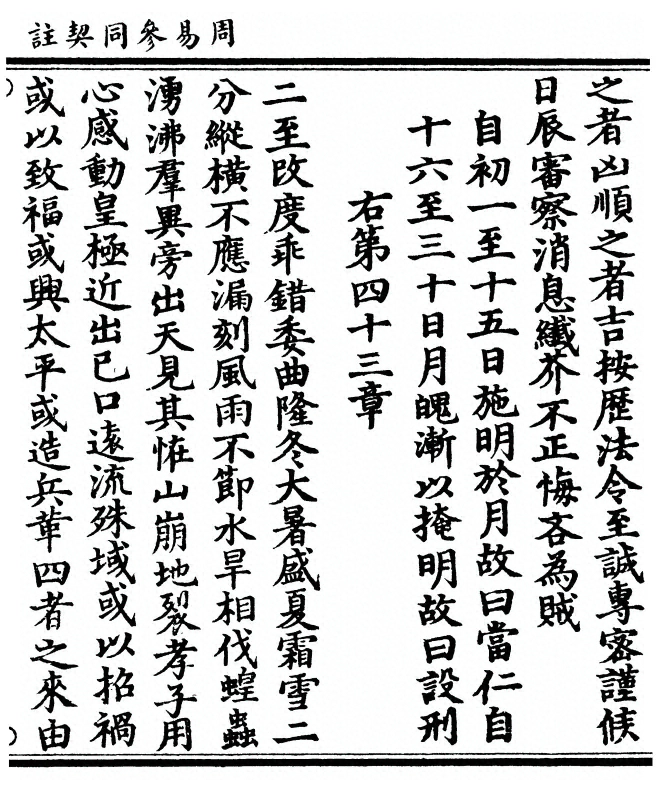 周易參同契註
之者凶順之者吉按歷法令至誠專密謹候
日辰審察消息纖芥不正悔吝為賊
自初一至十五日施明於月故曰當仁自
十六至三十日月魄漸以掩明故曰設刑
右第四十三章
二至改度乖錯委曲隆冬大暑盛夏霜雪二
分縱橫不應漏刻風雨不節水旱相伐蝗蟲
湧沸羣異旁出天見其恠山崩地裂孝子用
心感動皇極近出己口遠流殊域或以招禍
或以致福或興太平或造兵革四者之來由